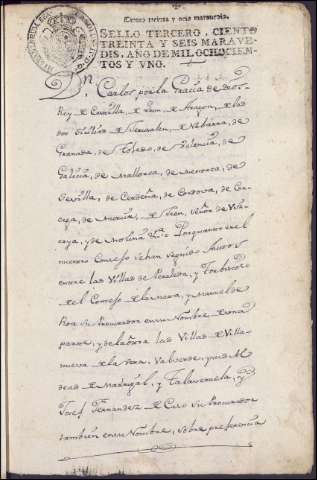 Ciento treinta y seis maravedis.
SELLO TERCERO, CIENTO
TREINTA Y SEIS MARAVE-
DIS, AÑO DE MIL OCHOCIEN-
TOS Y UNO.
Dn. Carlos por la Gracia de Dios
Rey de Castilla de Leon de Aragon, de las
dos Sicilias de Jerusalen, de Navarra, de
Granada, de Toledo, de Valencia, de
Galicia, de Mallorca, de Menorca, de
Sevilla, de Cerdeña, de Cordova, de Cor
cega, de Murcia, de Jaen, Señor de Viz
caya, y de Molina &c. Por quanto en el
nuestro Consejo se han seguido Autos
entre las Villas de Peraleda, y
de el Consejo de la y Manuel de
su Procurador en su Nombre de una
parte, y de la otra las Villas de Villa
nueva de la Vera, Valverde,
de Madrigal, y Talaveruela, y
Josef Fernandez de su Procurador
tambien en su Nombre, sobre preferencia